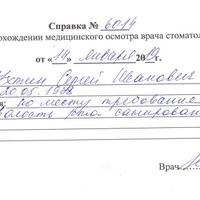 Справка № 6014
охождении медицинского осмотра врача стомато
от « 14 » января 2019 г.
Сергей Иванович
20.05.1988
по месту требования
полость рта санирована
Врач